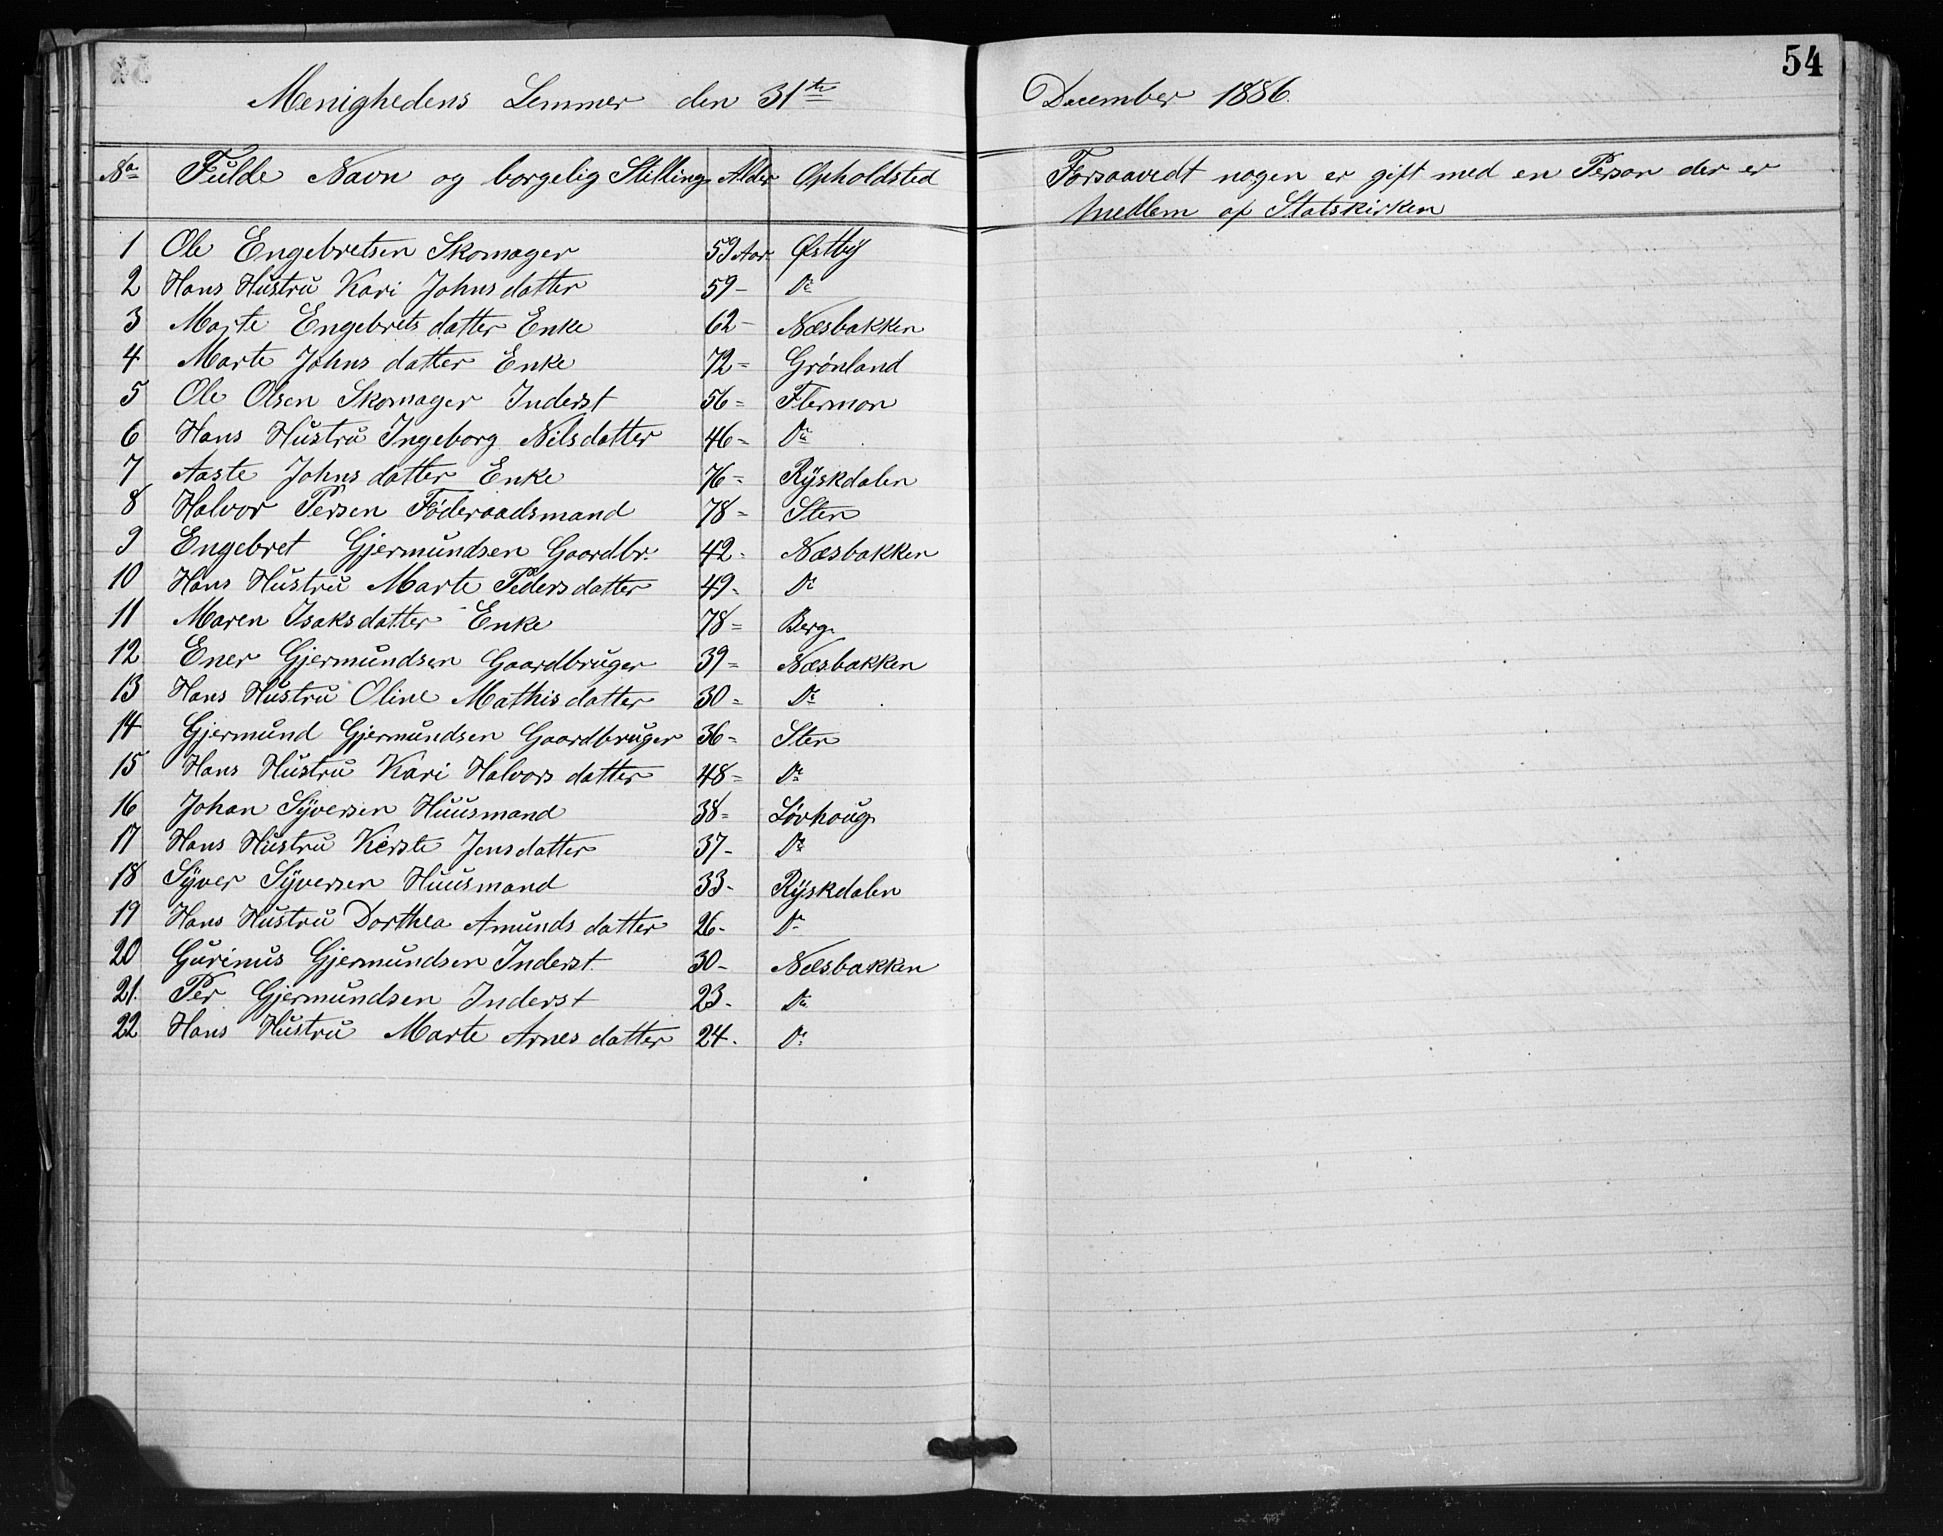 54
Menighedens Lemmer den 31te December 1886.
No Fulde Navn og borgelig Stilling Alder Opholdsted Forsaavedt nogen er gift med en Person der er
Medlem af Statskirken
1 Ole Engebretsen Skomager 59 Aar Østby
2 Hans Hustru Kari Johnsdatter 59- Do
3 Marte Engebrets datter Enke 62- Næsbakken
4 Marte Johns datter Enke 72= Grønland
5 Ole Olsen Skomager Inderst 56= Flermon
6 Hans Hustru Ingeborg Nilsdatter 46= Do
7 Aaste Johns datter Enke 76= Ryskdalen
8 Halvor Persen Føderaadsmand 78= Sten
9 Engebret Gjermundsen Gaardbr. 42- Næsbakken
10 Hans Hustru Marte Pedersdatter 49- Do
11 Maren Isaksdatter Enke 78= Berg
12 Ener Gjermundsen Gaardbruger 39= Næsbakken
13 Hans Hustru Oline Mathisdatter 30= Do
14 Gjermund Gjermundsen Gaardbruger 36= Sten
15 Hans Hustru Kari Halvors datter 48= Do
16 Johan Syversen Huusmand 38= Løvhoug
17 Hans Hustru Kerste Jensdatter 37- Do
18 Syver Syversen Huusmand 33- Ryskdalen
19 Hans Hustru Dorthea Amunds datter 26- Do
20 Gurinus Gjermundsen Inderst. 30- Næsbakken
21. Per Gjermundsen Inderst 23- Do
22 Hans Hustru Marte Arnes datter 24. Do